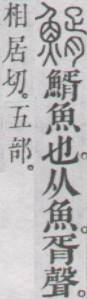 䱬䱬魚也。从魚胥聲。
相居切。五部。